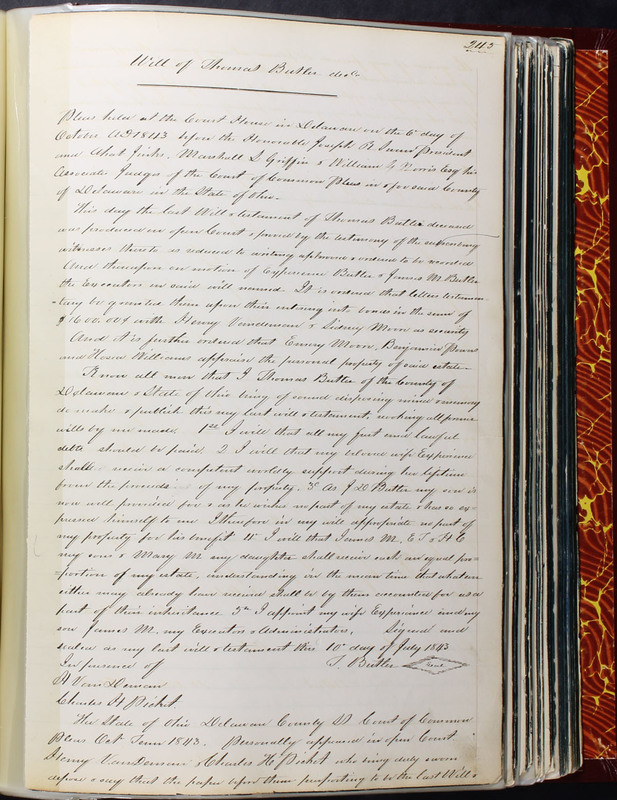 243
Will of Thomas Butler decd
Pleas held at the Court House in Delaware on the 6th day of
October AD 1843 before the Honorable Joseph R Swan President
and Ahab Jinks, Marshall L Griffin & William G Norris Esqrs his
Associate Judges of the Court of Common Pleas in & for said County
of Delaware in the State of Ohio.
This day the last Will & testament of Thomas Butler deceased
was produced in open Court & proved by the testimony of the subscribing
witnesses thereto as reduced to writing approved & ordered to be recorded
And thereupon on motion of Experience Butler & James M. Butler
the Executors in said will named. It is ordered that letters testamen
-tary be granted them upon their entering into bonds in the sum of
$1600.00 with Henry Vandeman & Sidney Moore as security
And it is further ordered that Emery Moore, Benjamin Powers
and Hosea Williams appraise the personal property of said estate.
Know all men that I Thomas Butler of the County of
Delaware & State of Ohio being of sound disposing mind & memory
do make & publish this my last will & testament, revoking all former
wills by me made. 1st I will that all my just and lawful
debts should be paid. 2 I will that my beloved wife Experience
shall receive a competent worldly support during her lifetime
from the proceeds of my property. 3d As J D Butler my son is
now well provided for & as he wishes no part of my estate & has so ex-
pressed himself to me I therefore in my will appropriate no part of
my property for his benefit 4th I will that James M, E T & H E
my sons & Mary M my daughter shall receive each an equal pro-
-portion of my estate, understanding in the mean time that whatever
either may already have received shall be by them accounted for as a
part of their inheritance 5th I appoint my wife Experience and my
son James M, my Executors & Administrators. Signed and
sealed as my last will & testament this 10th day of July 1843
In presence of T. Butler Seal
H Van Deman
Charles H Picket.
The State of Ohio Delaware County SS Court of Common
Pleas Oct Term 1843. Personally appeared in open Court
Henry VanDeman & Charles H. Picket who being duly sworn
depose & say that the paper before them purporting to be the last Will &